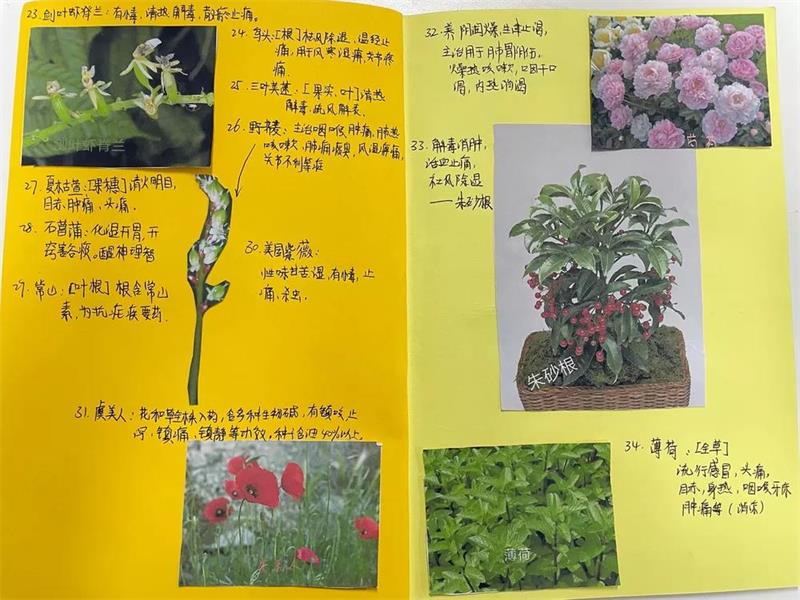 23. 剑叶虾脊兰：有毒，清热解毒，散瘀止痛。
24. 乌头：[根] 祛风除湿，温经止
痛，用于风寒湿痛，关节疼
痛.
25. 三叶芙蓉：[果实、叶] 清热
解毒，疏风解表.
26. 野凌：主治咽喉肿痛，肺热
咳嗽，肺痈痰臭，风湿痹痛，
关节不利等症
剑叶虾脊兰
27. 夏枯草：[果穗] 清火明目，
目赤肿痛、头痛.
28. 石菖蒲：化湿开胃，开
窍豁痰，醒神理智
29. 常山：[叶根] 根含常山
素，为抗疟疾要药.
30. 美国紫薇：
性味甘苦湿，有毒，止
痛、杀虫.
31. 虞美人：花和全株入药，含多种生物碱，有镇咳、止
泻、镇痛、镇静等功效，种子含油40%以上.
32. 养阴润燥，生津止渴，
主治用于肺胃阴伤.
燥热咳嗽，口咽干口
渴，内热消渴
33. 解毒消肿，
活血止痛，
祛风除湿
——朱砂根
朱砂根
34. 薄荷：[全草]
流行感冒，头痛，
目赤，身热，咽喉牙床
肿痛等（消炎）
薄荷